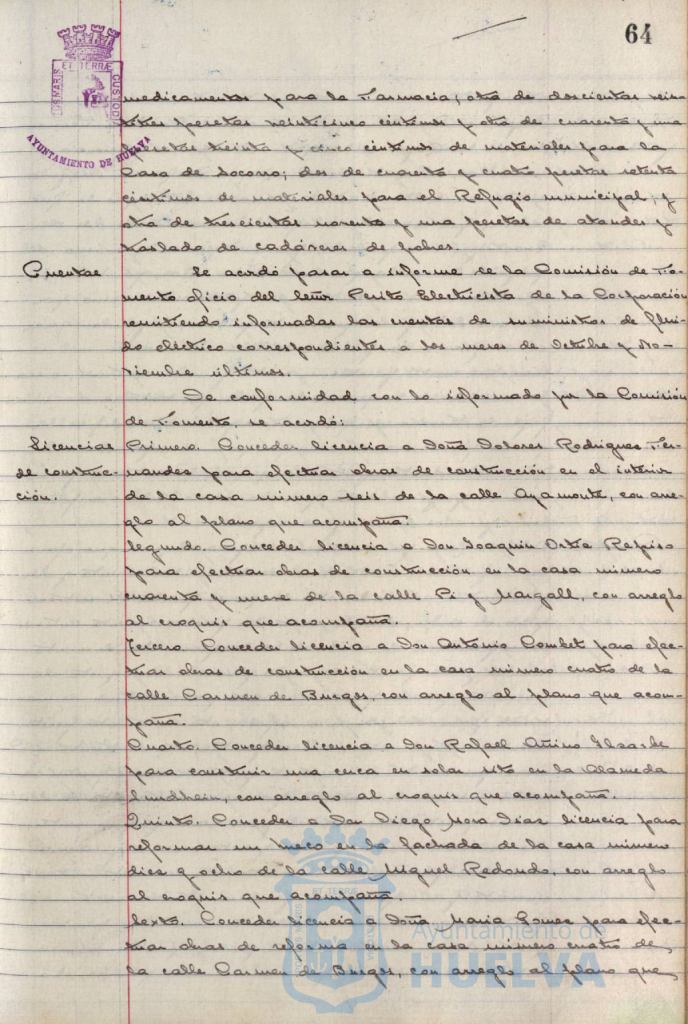 64
ET TERRÆ
AYUNTAMIENTO DE HUELVA
medicamentos para la Farmacia; otra de doscientas vein-
titres pesetas veinticinco céntimos y otra de cuarenta y una
pesetas treinta y cinco céntimos de materiales para la
Casa de Socorro; dos de cuarenta y cuatro pesetas setenta
céntimos de materiales para el Refugio municipal; y
otra de trescientas noventa y una pesetas de ataudes y
traslado de cadáveres de pobres.
Cuentas
Se acordó pasar a informe de la Comisión de Fo-
mento oficio del Señor Perito Electricista de la Corporación
remitiendo informadas las cuentas de suministros de flui-
do eléctrico correspondientes a los meses de Octubre y No-
viembre últimos.
De conformidad con lo informado por la Comisión
de Fomento, se acordó:
Licencias
de construc-
ción.
Primero. Conceder licencia a Doña Dolores Rodriguez Fer-
nandez para efectuar obras de construcción en el interior
de la casa número seis de la calle Ayamonte, con arre-
glo al plano que acompaña.
Segundo. Conceder licencia a Don Joaquin Ortiz Repiso
para efectuar obras de construcción en la casa número
cuarenta y nueve de la calle Pi y Margall, con arreglo
al croquis que acompaña.
Tercero. Conceder licencia a Don Antonio Combet para efec-
tuar obras de construcción en la casa número cuatro de la
calle Carmen de Burgos, con arreglo al plano que acom-
paña.
Cuarto. Conceder licencia a Don Rafael Añino
para construir una cerca en solar sito en la Alameda
Sundheim, con arreglo al croquis que acompaña.
Quinto. Conceder a Don Diego Mora Diaz licencia para
reformar un hueco en la fachada de la casa número
diez y ocho de la calle Miguel Redondo, con arreglo
al croquis que acompaña.
Sexto. Conceder licencia a Doña Maria Gomez para efec-
tuar obras de reforma en la casa número cuatro de
la calle Carmen de Burgos, con arreglo al plano que
Ayuntamiento de
HUELVA